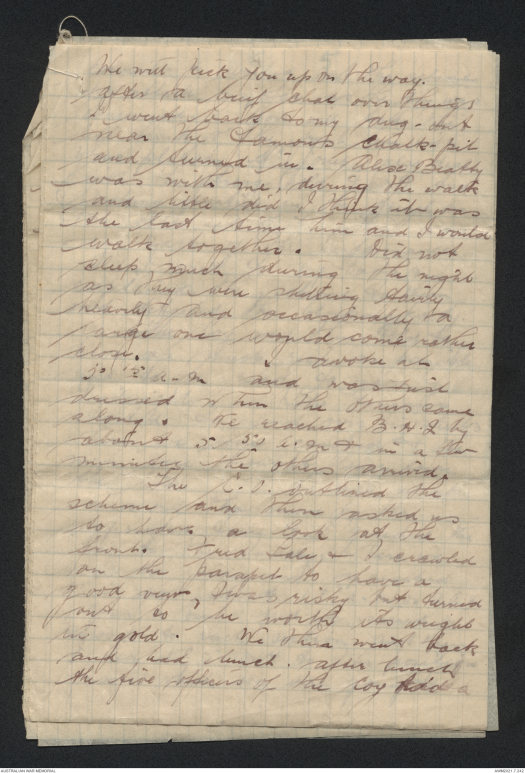 We will pick you up on the way.
after a brief chat over things
I went back to my dug-out
near the famous chalk-pit
and turned in. Alec Beatty
was with me, during the walk
and little did I think it was
the last time him and I would
walk together. Did not
sleep much during the night
as they were shelling fairly
heavily and occasionally a
large one would come rather
close. I awoke at
a.m and was just
dressed when the others came
along. We reached B.H.Q by
about 5. a.m & in a few
minutes the others arrived.
The C.O. outlined the
scheme and then asked us
to have a look at the
front. Fred & I crawled
on the parapet to have a
good view, twas risky but turned
out to be worth its weight
in gold. We then went back
and had lunch. after lunch
the five officers of the coy had a
AUSTRALIAN WAR MEMORIAL